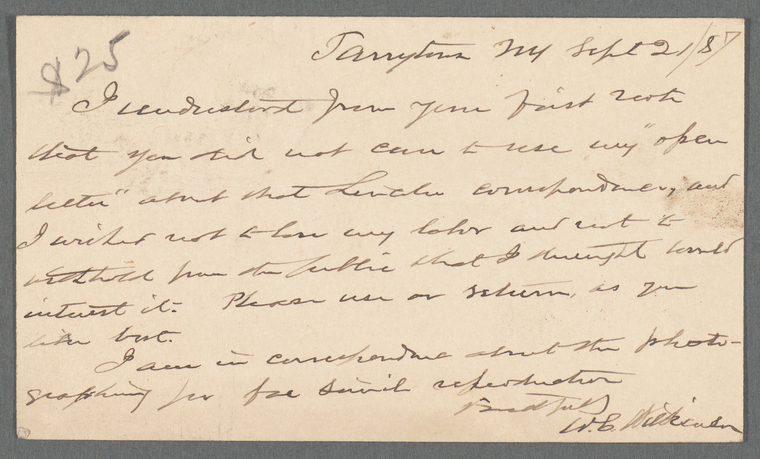 $25
Tarrytown NY Sept 21/87
I understand from your first note
that you did not care to use my "open
letter" about that Lincoln correspondence, and
I wished not to lose my labor and not to
withhold from the public what I thought would
interest it. Please use or return, as you
like best.
I am in correspondence about the photo-
graphing for fac simile reproduction
W. C. Wilkinson